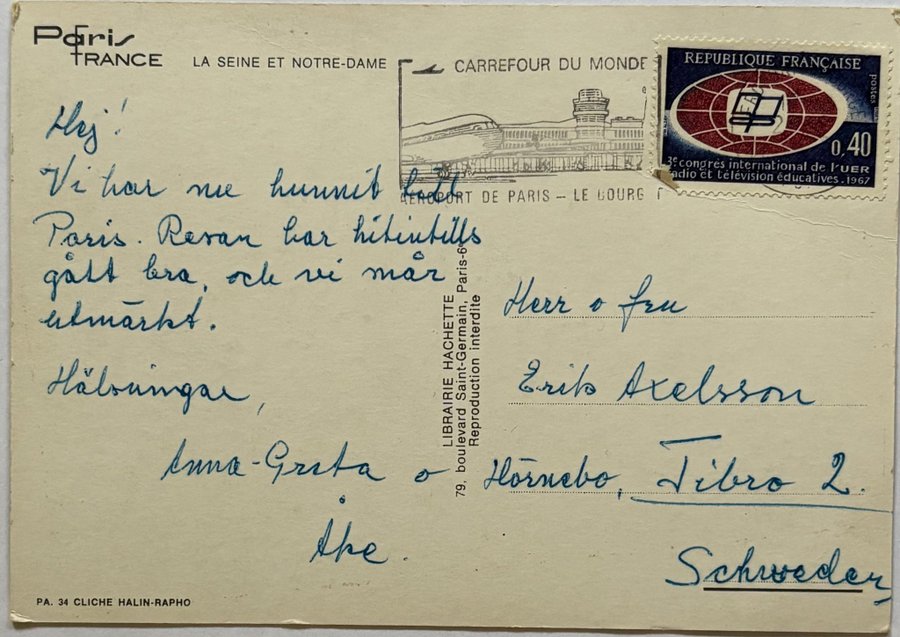 Paris
FRANCE
LA SEINE ET NOTRE-DAME
CARREFOUR DU MONDE
AEROPORT DE PARIS – LE BOURG T
REPUBLIQUE FRANÇAISE
postes
0,40
3e congrès international de l'UER
radio et télévision éducatives.1967
Hej!
Vi har nu hunnit
Paris. Resan har hitintills
gått bra, och vi mår
utmärkt.
Hälsningar,
Anna-Greta o
Åke.
LIBRAIRIE HACHETTE
79, boulevard Saint-Germain, Paris-6e
Reproduction interdite
Herr o fru
Erik Axelsson
Hörnebo, Tibro 2.
Schweden
PA. 34 CLICHE HALIN-RAPHO